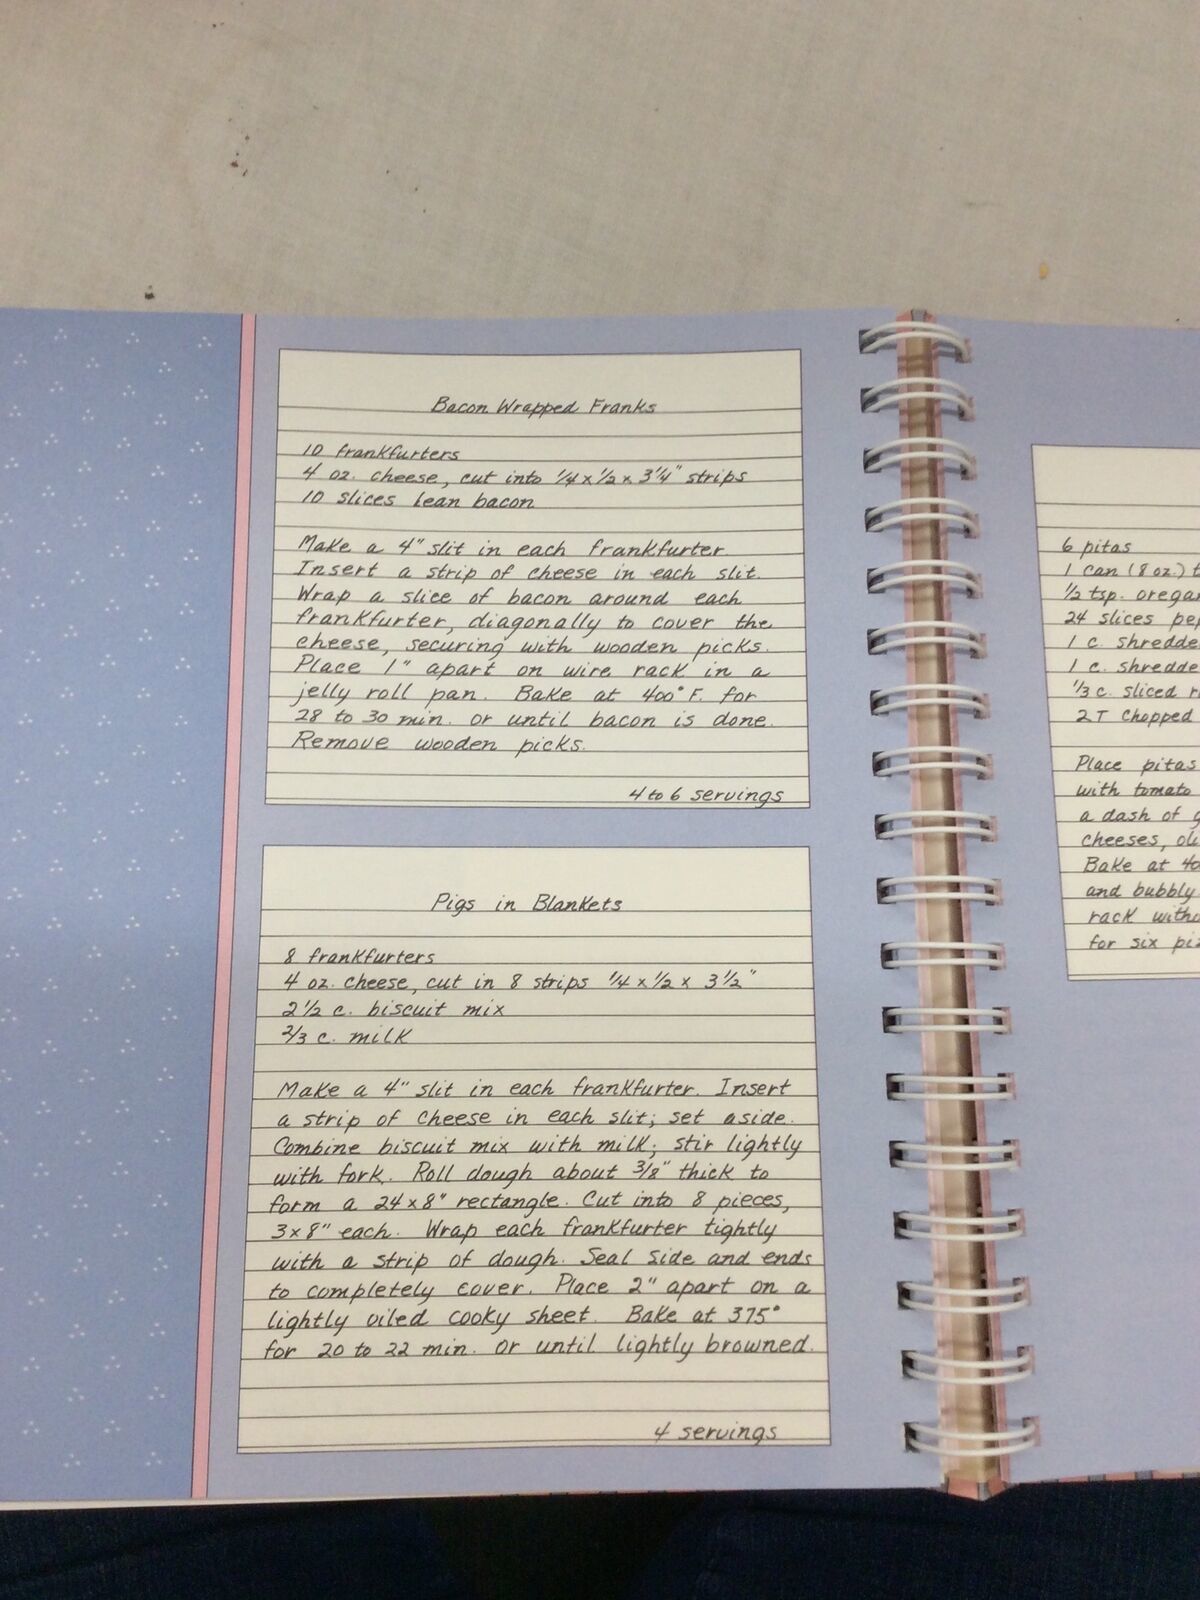 Bacon Wrapped Franks
10 frankfurters
4 oz. cheese, cut into 1/4 x 1/2 x 3 1/4" strips
10 slices lean bacon
Make a 4" slit in each frankfurter.
Insert a strip of cheese in each slit.
Wrap a slice of bacon around each
frankfurter, diagonally to cover the
cheese, securing with wooden picks.
Place 1" apart on wire rack in a
jelly roll pan. Bake at 400° F. for
28 to 30 min. or until bacon is done.
Remove wooden picks.
4 to 6 servings
Pigs in Blankets
8 frankfurters
4 oz. cheese, cut in 8 strips 1/4 x 1/2 x 3 1/2"
2 1/2 c. biscuit mix
2/3 c. milk
Make a 4" slit in each frankfurter. Insert
a strip of cheese in each slit; set aside.
Combine biscuit mix with milk; stir lightly
with fork. Roll dough about 3/8" thick to
form a 24 x 8" rectangle. Cut into 8 pieces,
3 x 8" each. Wrap each frankfurter tightly
with a strip of dough. Seal side and ends
to completely cover. Place 2" apart on a
lightly oiled cooky sheet. Bake at 375°
for 20 to 22 min. or until lightly browned.
4 servings
6 pitas
1 can (8 oz.)
1/2 tsp.
24 slices
1 c.
1 c.
1/3 c. sliced
2 T chopped
Place pitas
with tomato
a dash of
cheeses,
Bake at
and bubbly
rack
for six